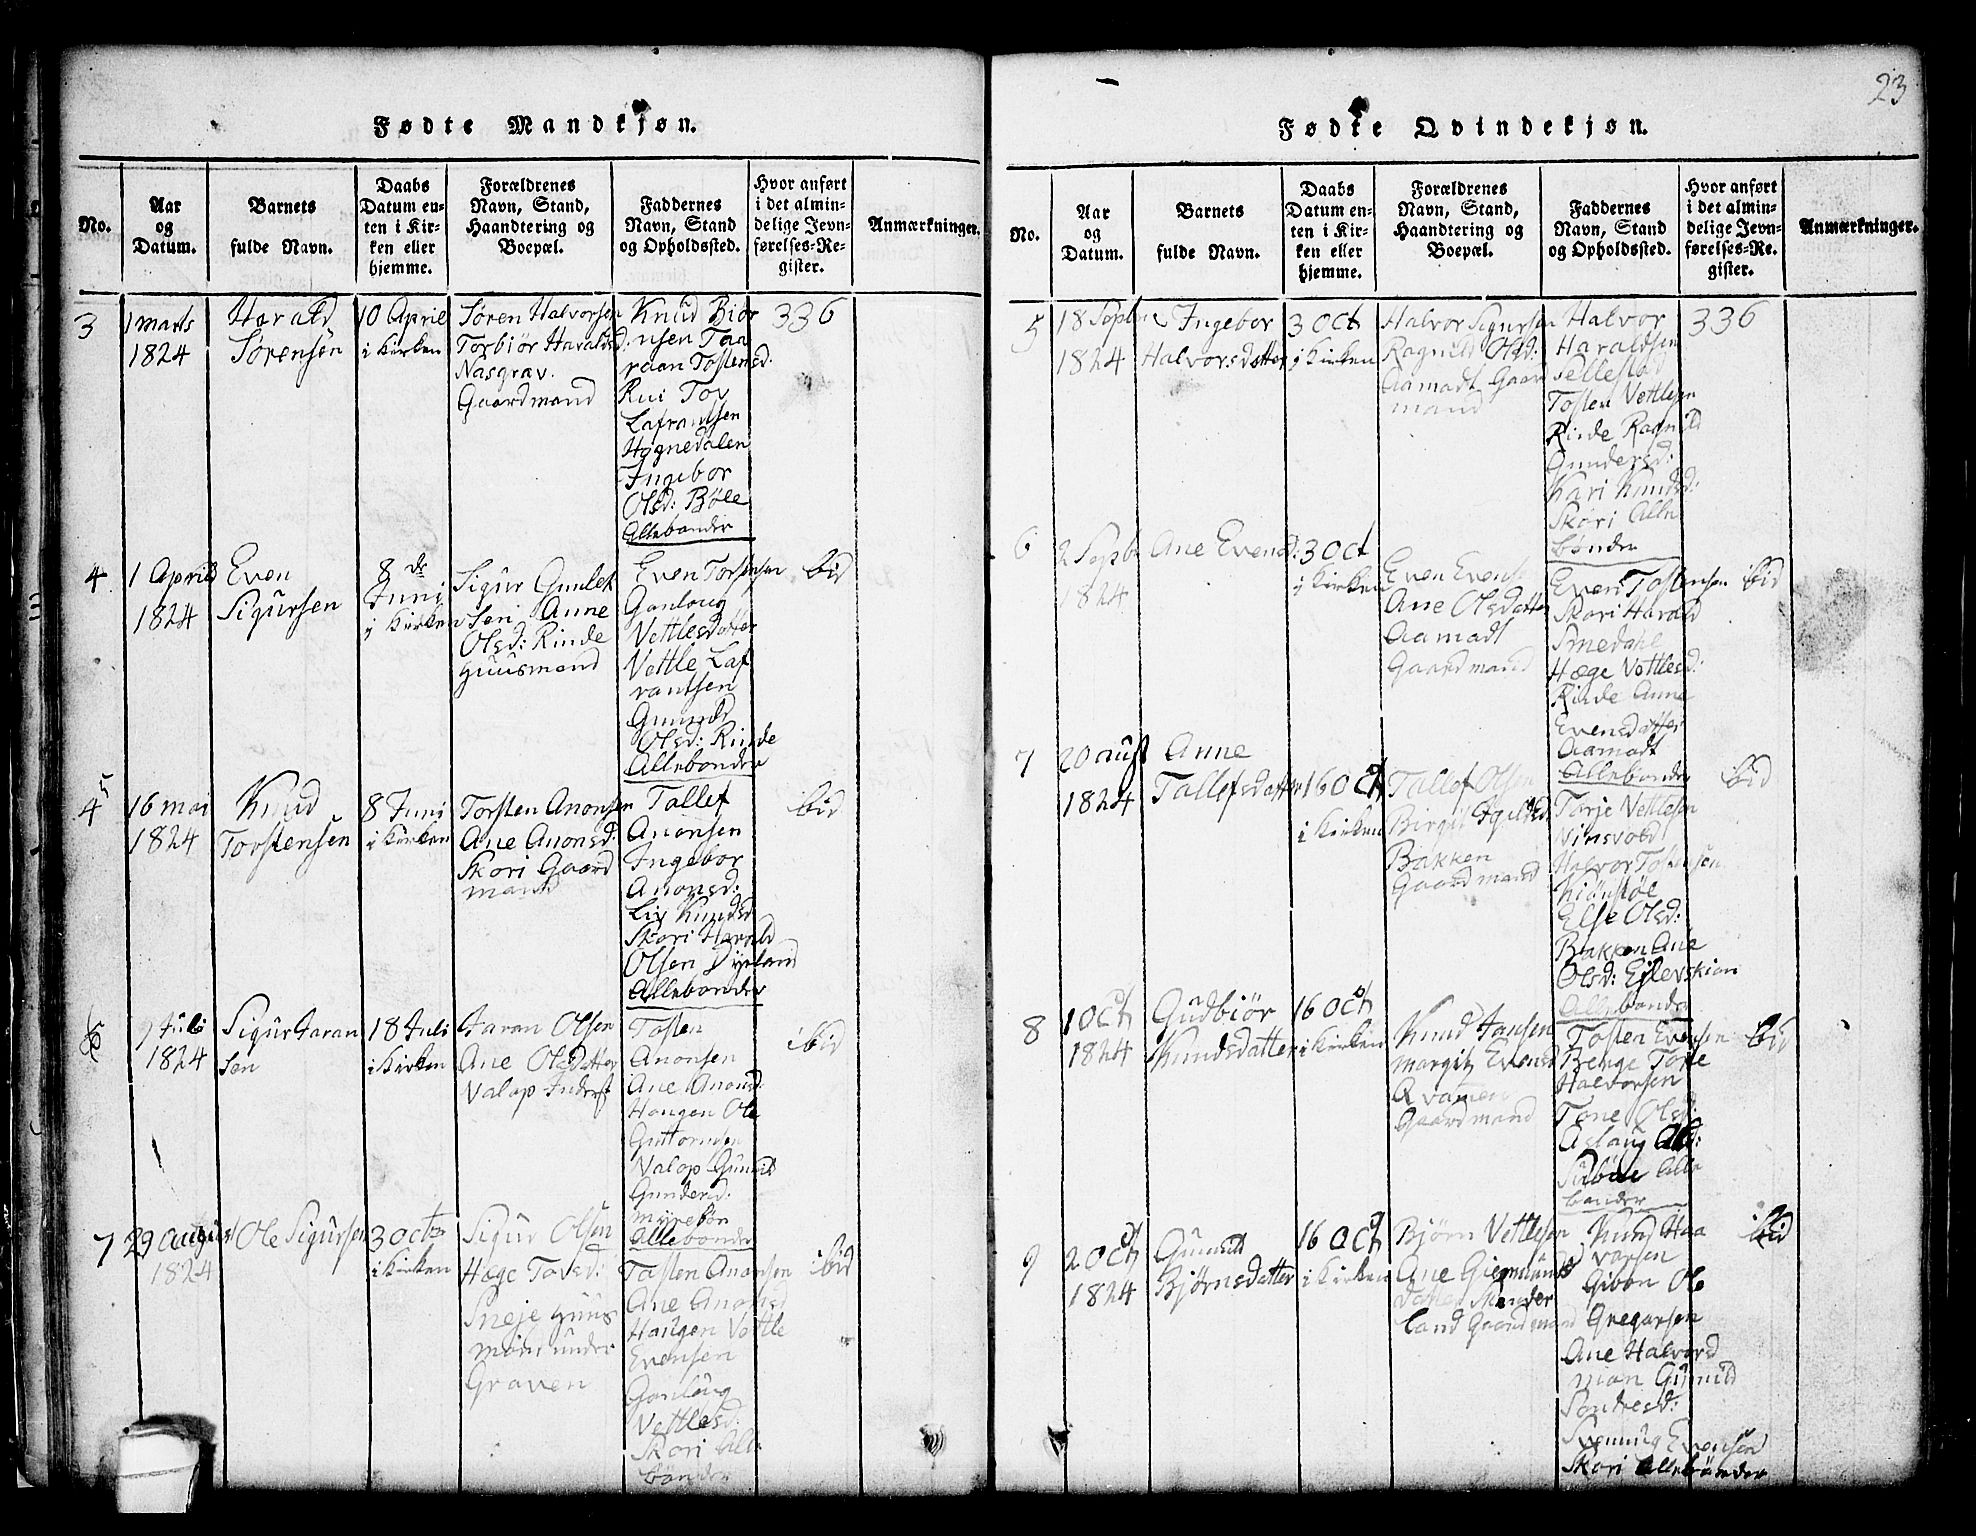 23
Fødte Mandkjøn.
No.
Aar
og
Datum.
Barnets
fulde Navn.
Daabs
Datum en-
ten i Kir-
ken eller
hjemme.
Forældrenes
Navn, Stand,
Haandtering og
Boepæl.
Faddernes
Navn, Stand
og Opholdssted.
Hvor anført
i det almin-
delige Jevn-
førelses-Re-
gister.
Anmærkninger.
3
1 marts
1824
Harald
Sørensen
10 April
i Kirken
Søren Halvorsen
Torbiør Haraldsd:
Nasgrav.
Gaardmand
Knud Biør
nsen Taa
raan Tostensd:
Rui Tov
Lafrantsen
Høgnedalen
Ingebor
Olsd: Bøle
Allebønder
336
4
1 April
1824
Even
Sigursen
8 de
Juni
i Kirken
Sigur Gunlek
sen Anne
Olsd: Rinde
Huusmand
Even Torstensen
Gonloug
Vettlesdatter
Vettle Laf
rantsen
Gunild
Olsd: Rinde
Allebønder
ibid
5
16 mai
1824
Knud
Torstensen
8 Juni
i Kirken
Torsten Anonsen
Ane Anonsd:
Skori Gaard
mand
Tallef
Anonsen
Ingebor
Anonsd:
Liv Knudsd
Skori Harald
Olsen Dyrland
Allebønder
ibid
6
9 Juli
1824
Sigur Jaran
Søn
18 Juli
i Kirken
Jaran Olsen
Ane Olsdatter
Valop Inderst
Tosten
Anonsen
Ane Anonsd:
Haugen Ole
Guttormsen
Valop Gunild
Gundersd:
Myrebøn
Allebønder
ibid
7
29 August
1824
Ole Sigursen
3 Octb
i Kirken
Sigur Olsen
Hæge Tovsd:
Sneje Huus
mand under
Graven
Tosten Anonsen
Ane Anonsd
Haugen Vettle
Evensen
Gonloug
Vettlesd:
Skori Alle
bønder
ibid
Fødte Qvindekjøn.
No.
Aar
og
Datum.
Barnets
fulde Navn.
Daabs
Datum en-
ten i Kir-
ken eller
hjemme.
Forældrenes
Navn, Stand,
Haandtering og
Boepæl.
Faddernes
Navn, Stand
og Opholdssted.
Hvor anført
i det almin-
delige Jevn-
førelses-Re-
gister.
Anmærkninger.
5
18 Septbr
1824
Ingebor
Halvorsdatter
3 Oct
i Kirken
Halvor Sigursen
Ragnild Olsd:
Aamadt Gaard
mand
Halvor
Haraldsen
Sellestad
Tosten Vettlesen
Rinde Ragnild
Gundersd:
Kari Knudsd:
Skori Alle
bønder
336
6
2 Septb
1824
Ane Evensd:
3 Oct
i Kirken
Even Evens
Ane Olsdatter
Aamadt
Gaardmand
Even Tostensen
Skori Harald
Smedahl
Hæge Vettlesd:
Rinde Anne
Evensdatter
Aamadt
Allebønder
ibid
7
20 aust
1824
Anne
Tallefsdatter
16 Oct
i Kirken
Tallef Olsen
Birgit
Bakken
Gaardmand
Torje Vettlesen
Vinsvold
Halvor Tostensen
Kiønstøe
Else Olsd:
Bakken Ane
Olsd: Ejlevskion
Allebønder
ibid
8
1 Oct
1824
Gudbiør
Knudsdatter
16 Oct
i Kirken
Knud Jansen
Margit Evensd
Qvamen
Gaardmand
Tosten Evensen
Benge Tore
Halvorsen
Tone Olsd:
Aslaug Olsd:
Sisbøle Alle
bønder
ibid
9
2 Oct
1824
Gunnild
Bjørnsdatter
16 Oct
i Kirken
Bjørn Vettlesen
Ane Giermunds
datter Skinder
land Gaardmand
Knud Haa
varsen
Gibøn Ole
Gregarsen
Ane Halvorsd
Moan Gunild
Sondresd:
Svennug Evensen
Skori Allebønder
ibid